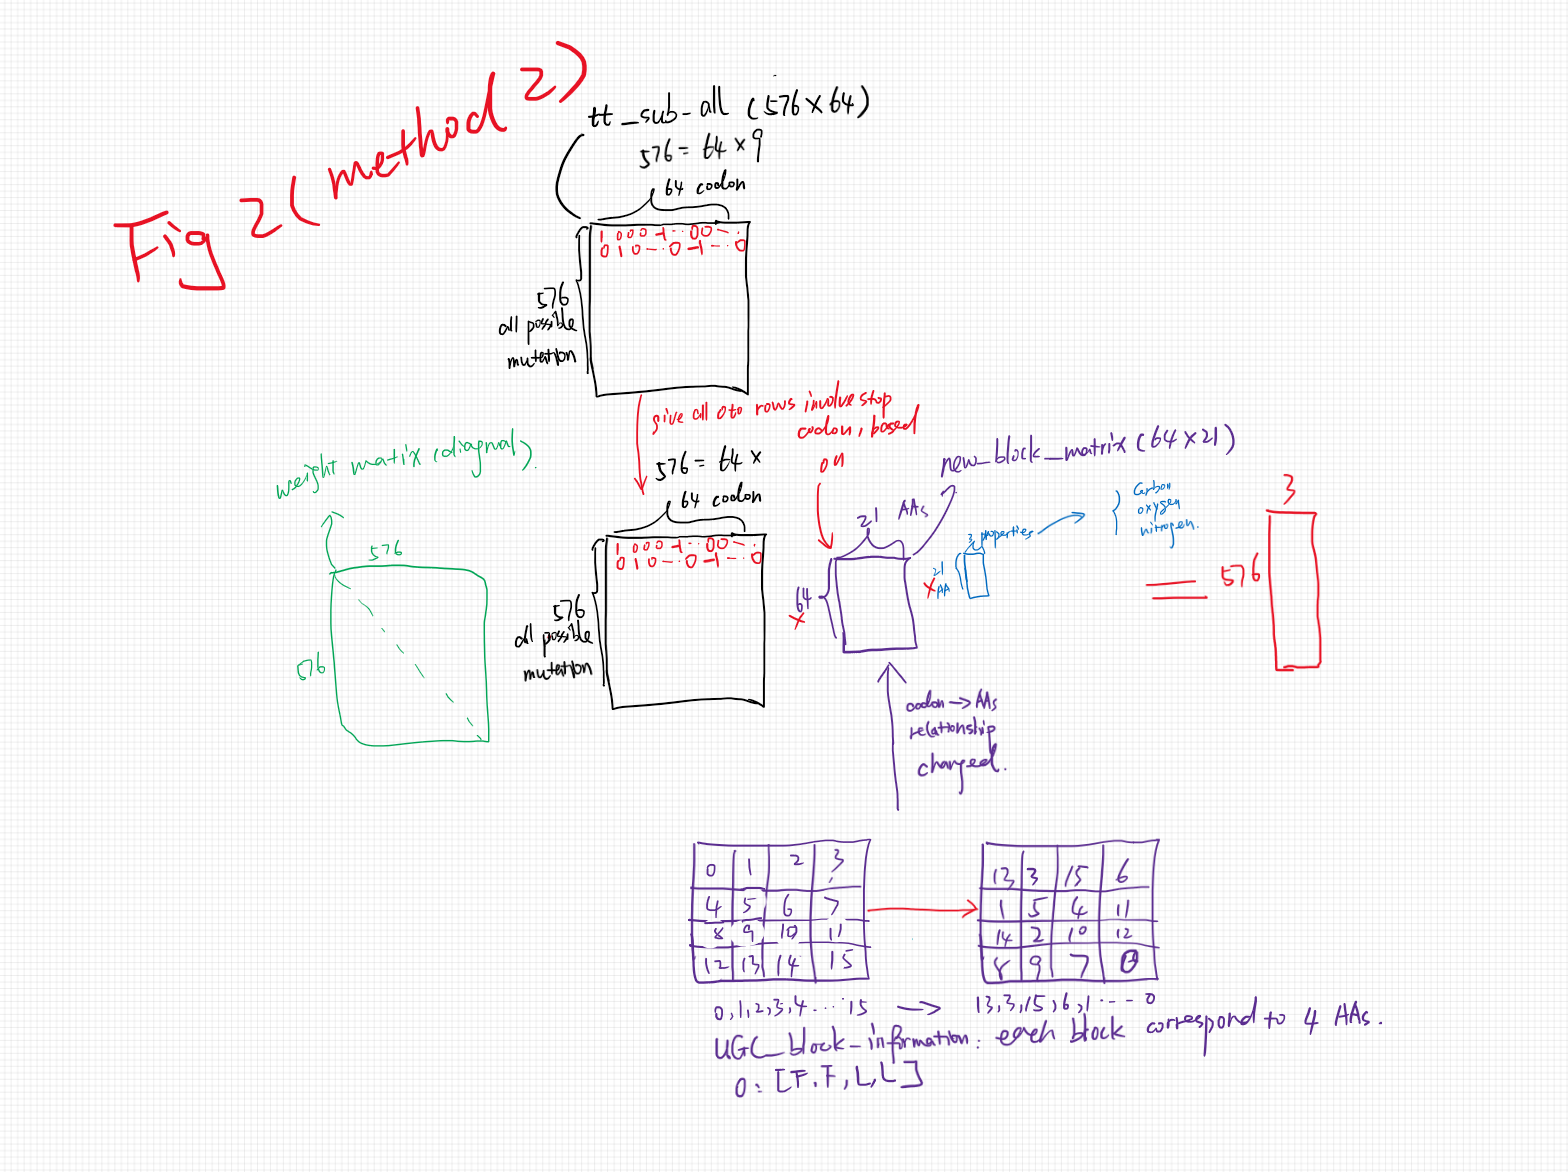 Fig 2 ( method 2 )
tt_sub-all (576 × 64)
576 = 64 × 9
64 codon
1 0 0 0 -1 ·· 0 0 — ··
0 1 0 — ·· 0 -1 — ·· 0
576
all possible
mutation
give all 0 to rows involve stop
codon, based
on
weight matrix (diagnal).
576
576
576 = 64 ×
64 codon
1 0 0 0 -1 ·· 0 0 — ··
0 1 0 — ·· 0 -1 — ·· 0
576
all possible
mutation
new_block_matrix (64 × 21)
21 AAs
64
×
3 properties
21
× AA
Carbon
oxygen
nitrogen.
=
576
3
codon → AAs
relationship
changed.
0 1 2 3
4 5 6 7
8 9 10 11
12 13 14 15
13 3 15 6
1 5 4 11
14 2 10 12
8 9 7 0
0,1,2,3,4 ···· 15 → 13,3,15,6,1 ···- 0
UGC_block-information: each block correspond to 4 AAs.
0: [F. F, L, L]